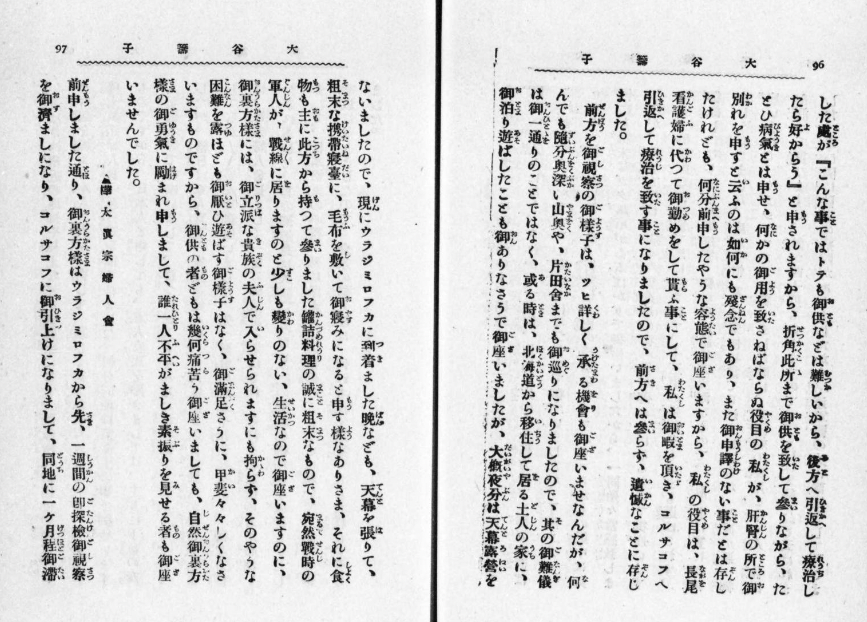 96
大谷籌子
した處が『こんな事ではトテも御供などは難しいから、後方へ引返して療治し
たら好からう』と申されますから、折角此所まで御供を致して參りながら、た
とひ病氣とは申せ、何かの御用を致さねばならぬ役目の私が、肝腎の所で御
別れを申すと云ふのは如何にも殘念でもあり、また御申譯のない事だとは存し
たけれども、何分前申したやうな容態で御座いますから、私の役目は、長尾
看護婦に代つて御勤めをして貰ふ事にして、私は御暇を頂き、コルサコフへ
引返して療治を致す事になりましたので、前方へは參らず、遺憾なことに存じ
ました。
前方を御視察の御樣子は、ツヒ詳しく承る機會も御座いませなんだが、何
んでも隨分奥深い山奥や、片田舍までも御巡りになりましたので、其の御難儀
は御一通りのことではなく、或る時は、北海道から移住して居る土人の家に、
御泊り遊ばしたことも御ありなさうで御座いましたが、大槪夜分は天幕露營を
97
大谷籌子
ないましたので、現にウラジミロフカに到着ました晩なども、天幕を張りて、
粗末な携帶寢臺に、毛布を敷いて御寢みになると申す樣なありさま、それに食
物も主に此方から持つて參りました罐詰料理の誠に粗末なもので、宛然戰時の
軍人が、戰線に居りますのと少しも變りのない、生活なので御座いますのに、
御裏方樣には、御立派な貴族の夫人で入らせられますにも拘らず、そのやうな
困難を露ほども御厭ひ遊ばす御樣子はなく、御滿足さうに、甲斐々々しくなさ
いますものですから、御供の者どもは幾何痛苦う御座いましても、自然御裏方
樣の御勇氣に勵まれ申しまして、誰一人不平がましき素振りを見せる者も御座
いませんでした。
樺太眞宗婦人會
前申しました通り、御裏方樣はウラジミロフカから先、一週間の御探檢御視察
を御濟ましになり、コルサコフに御引上けになりまして、同地に一ケ月程御滯